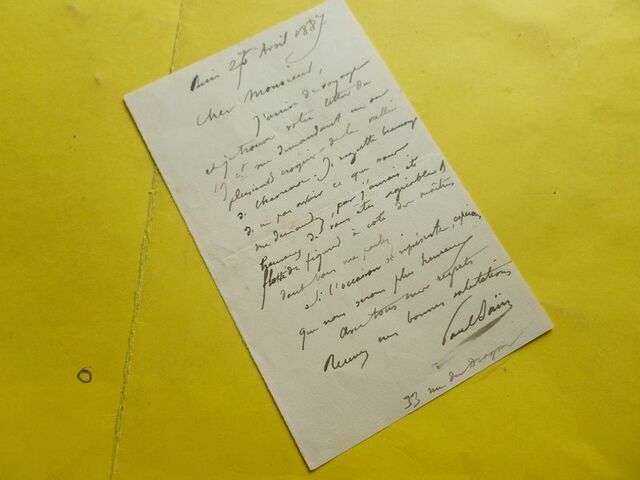 27 Avril 1887
Cher Monsieur,
J'arrive de voyage
et je trouve votre lettre du
17 et me demandant un ou
plusieurs croquis de la vallée
de . Je regrette beaucoup
de ne pas avoir ce que vous
me demandez, car j'aurais été
heureux de vous être agréable &
flatté de figurer à côté des maîtres
dont vous me parlez.
Si l'occasion se représente, espérons
que nous serons plus heureux
Avec tous mes regrets
Recevez mes bonnes salutations
Paul Saïn
33 rue du Dragon